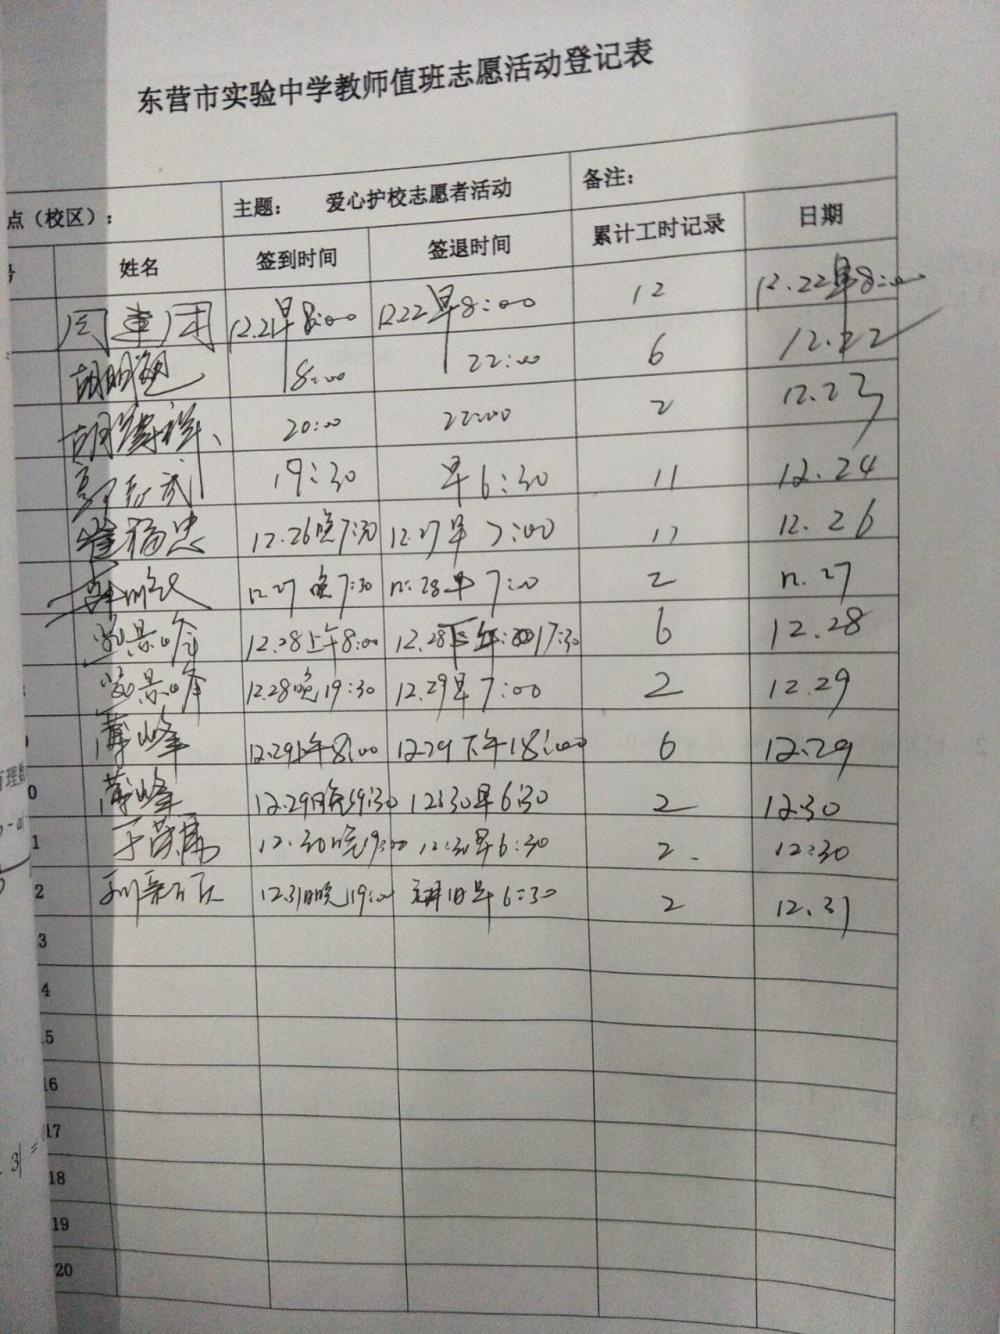 东营市实验中学教师值班志愿活动登记表
点（校区）： 主题： 爱心护校志愿者活动 备注：
号 姓名 签到时间 签退时间 累计工时记录 日期
12.21早8:00 12.22早8:00 12 12.22早8:00
18:00 22:00 6 12.22
20:00 22:00 2 12.23
19:30 早6:30 11 12.24
12.26晚7:30 12.27早7:00 12.26
12.27晚7:30 12.28早7:00 2 12.27
12.28上午8:00 12.28下午17:30 6 12.28
12.28晚19:30 12.29早7:00 2 12.29
薄峰 12.29上午8:00 12.29下午18:00 6 12.29
0 薄峰 12.29晚19:30 12:30早6:30 2 12.30
1 12.30晚19:00 12:31早6:30 2. 12:30
2 12.31晚19:00 元月1日早6:30 2 12.31
3
4
15
16
17
18
19
20